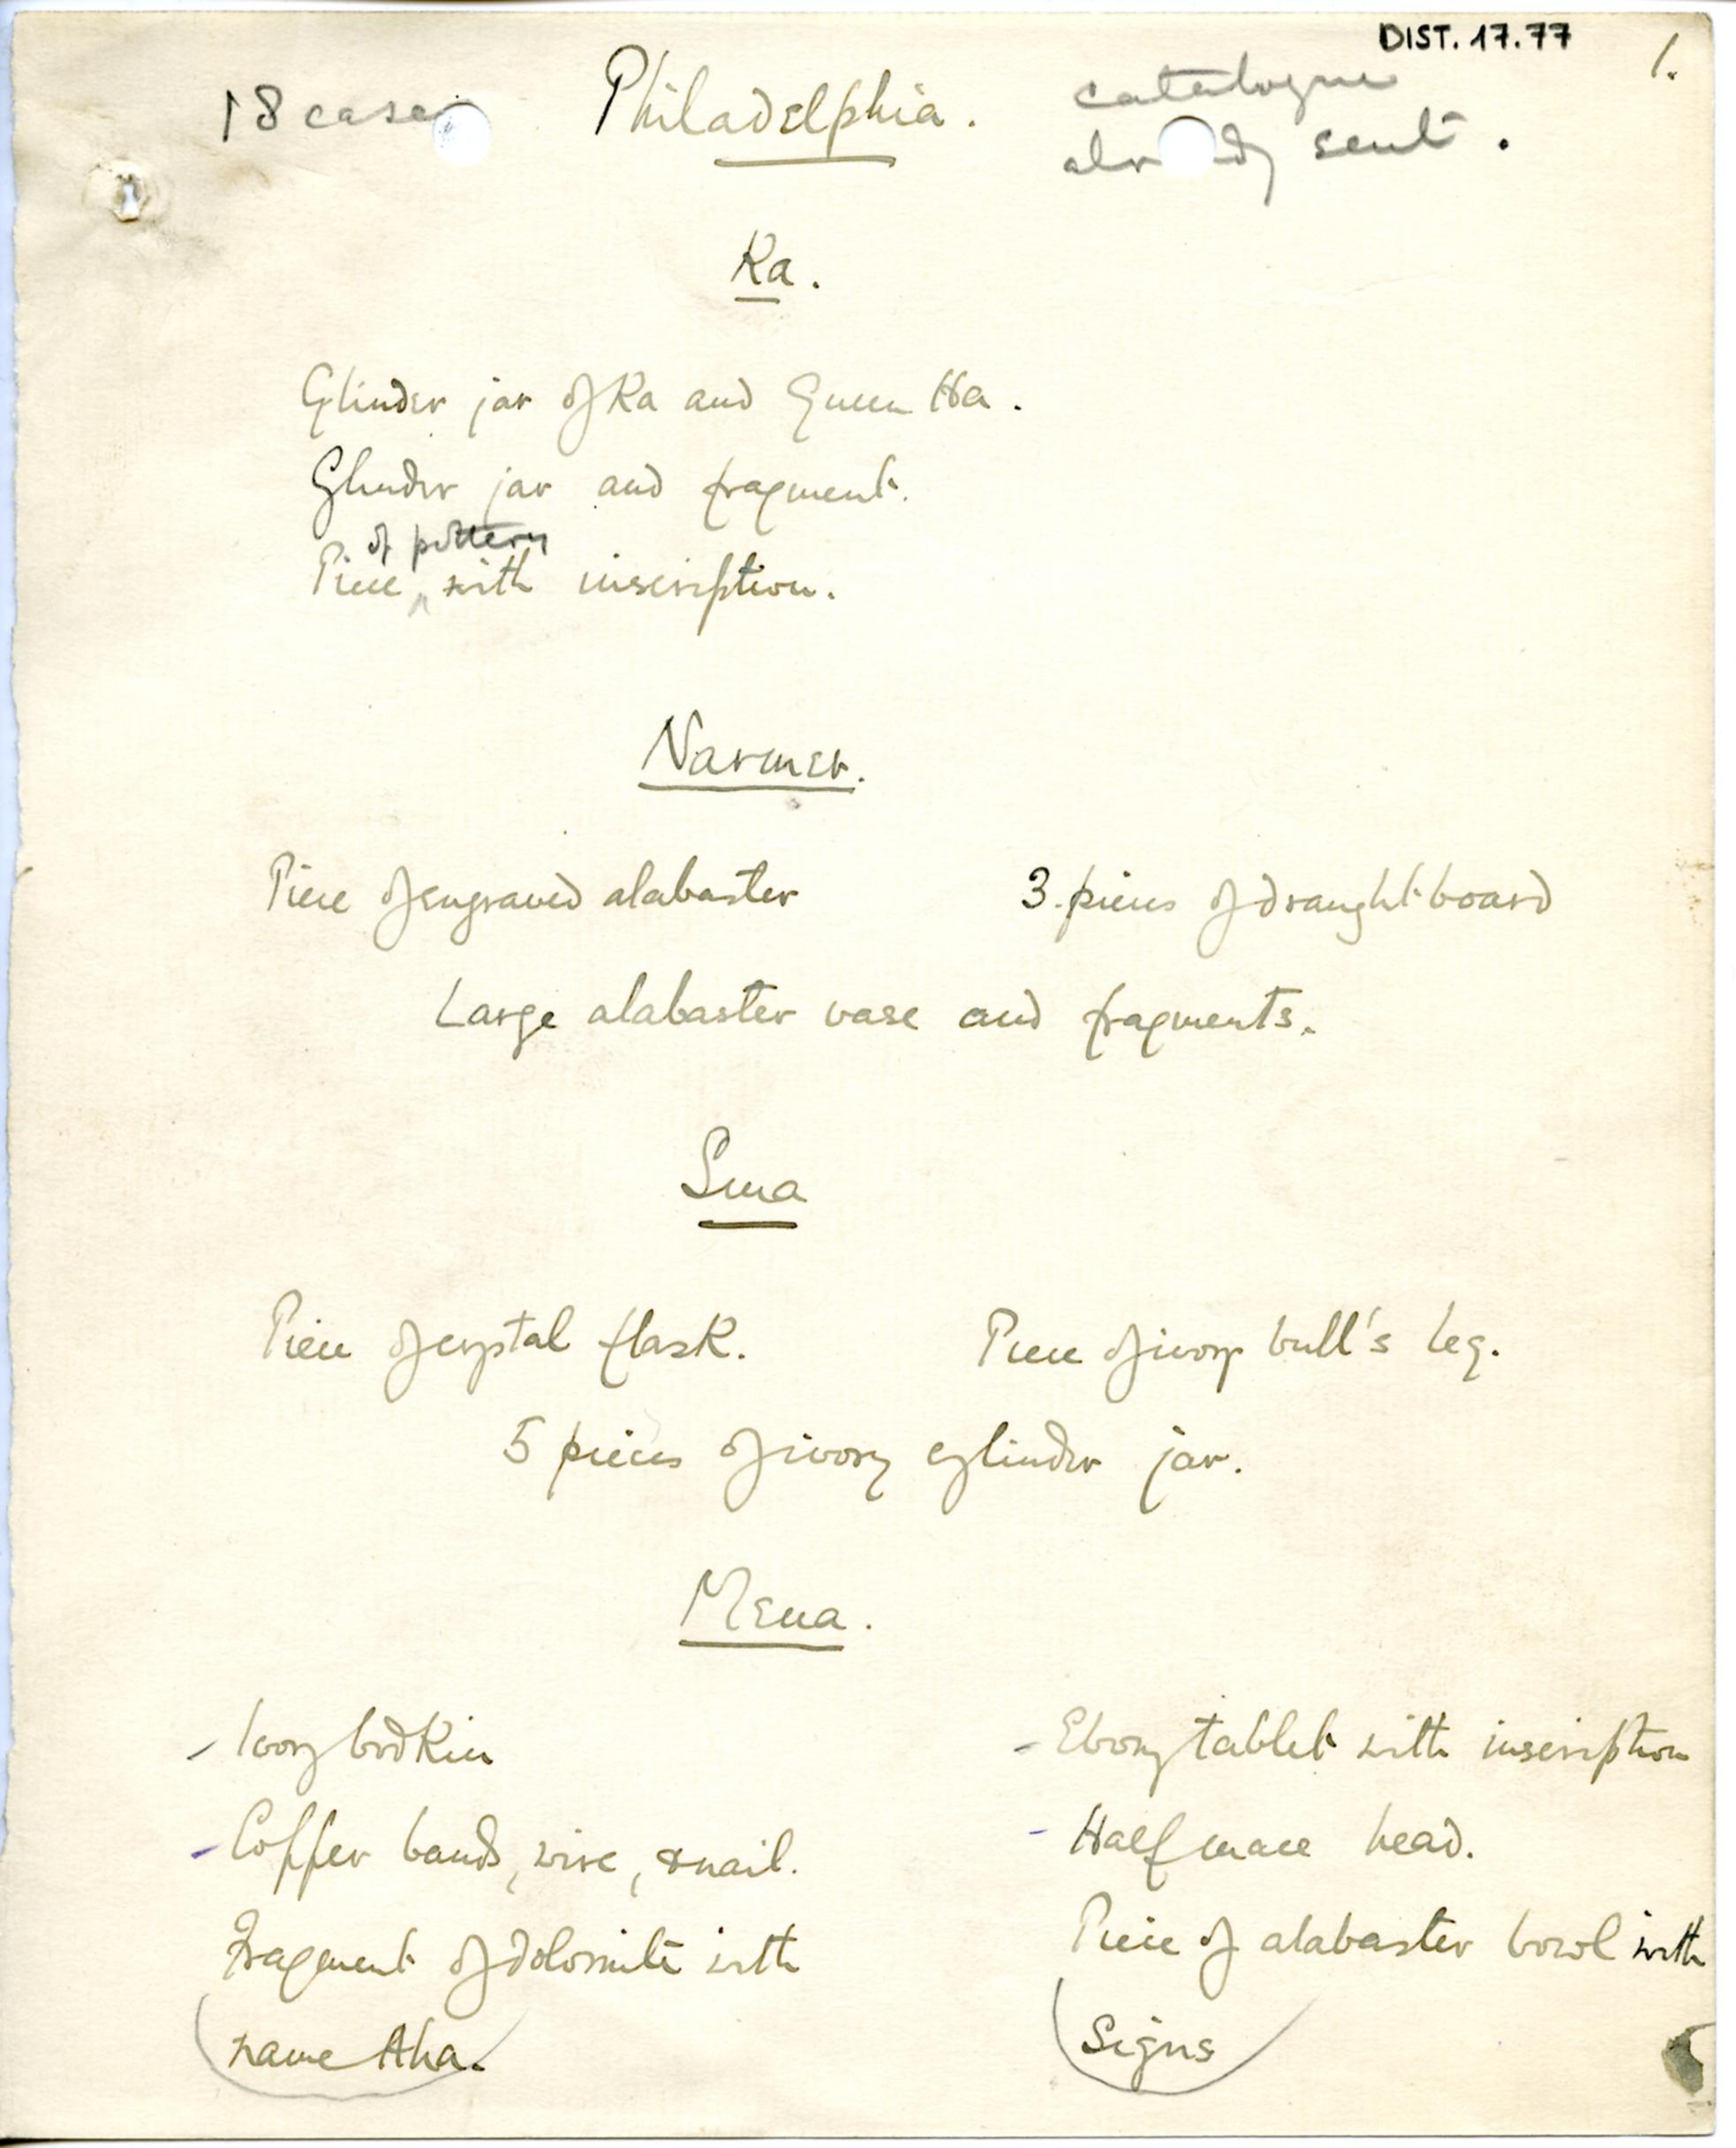 DIST. 17.77
1.
18 cases
Philadelphia.
catalogue
already sent.
Ka.
Cylinder jar of Ka and Queen Ha.
Cylinder jar and fragment.
of pottery
Piece ^ with inscription.
Narmer.
Piece of engraved alabaster 3 pieces of draught-board
Large alabaster vase and fragments.
Sma
Piece of crystal flask. Piece of ivory bull's leg.
5 pieces of ivory cylinder jar.
Mena.
- Ivory bodkin - Ebony tablet with inscription
- Copper bands, wire, & nail. - Half mace head.
Fragment of dolomite with Piece of alabaster bowl with
name Aha. signs